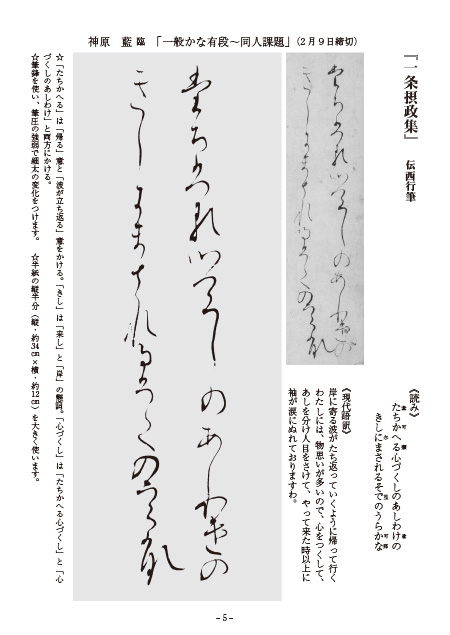 神原　藍 臨　「一般かな有段～同人課題」（２月９日締切）
『一条摂政集』　伝西行筆
《読み》
たちかへる心づくしのあしわけの
きしにまされるそでのうらかな
《現代語訳》
岸に寄る波がたち返っていくように帰って行く
わたしには、物思いが多いので、心をつくして、
あしを分け人目をさけて、やって来た時以上に
袖が涙にぬれておりますわ。
☆「たちかへる」は「帰る」意と「波が立ち返る」意をかける。「きし」は「来し」と「岸」の懸詞。「心づくし」は「たちかへる心づくし」と「心
づくしのあしわけ」と両方にかける。
☆筆鋒を使い、筆圧の強弱で細太の変化をつけます。　☆半紙の縦半分（縦・約34㎝×横・約12㎝）を大きく使います。
- 5 -